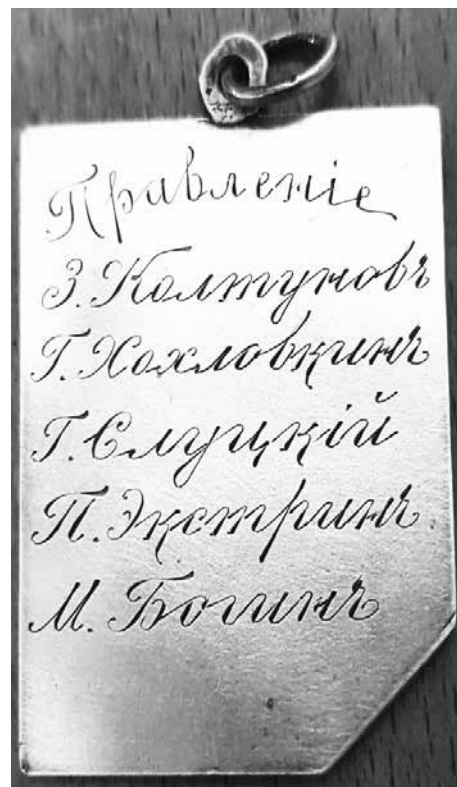 Правленіе
З. Колтуновъ
Г. Хохловкинъ
Г. Слуцкій
П. Экстринъ.
М. Богинъ